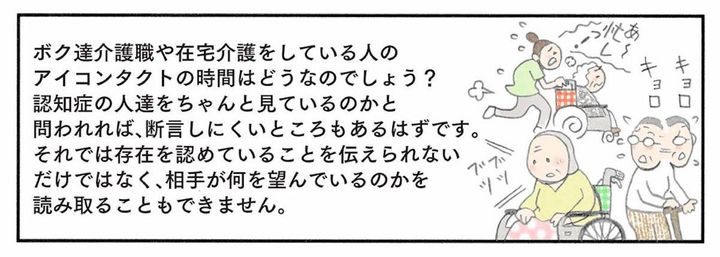 ボク達介護職や在宅介護をしている人の
アイコンタクトの時間はどうなのでしょう？
認知症の人達をちゃんと見ているのかと
問われれば、断言しにくいところもあるはずです。
それでは存在を認めていることを伝えられない
だけではなく、相手が何を望んでいるのかを
読み取ることもできません。
あ〜
忙しいっ
キョロ
キョロ
ブツブツ